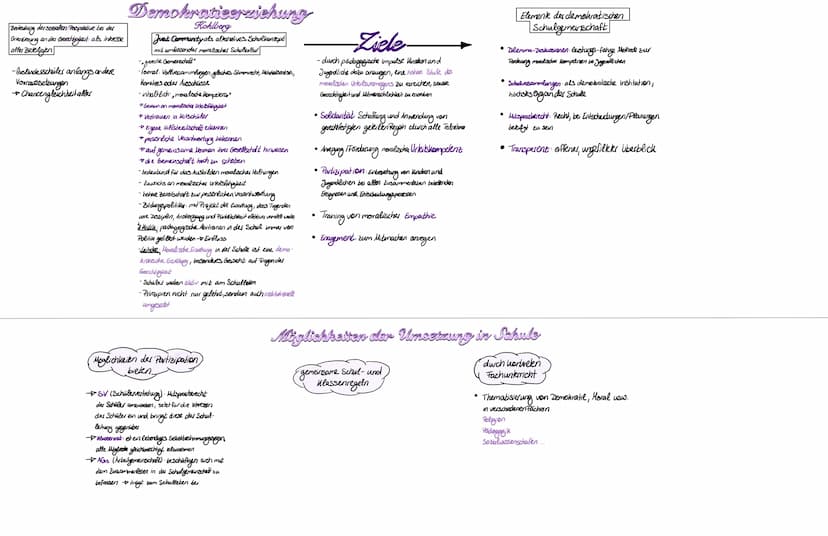 Demokratieerziehung
Kohlberg
Bedeutung der sozialen Perspektive bei der
Orientierung an der Gerechtigkeit als Interesse
aller Beteiligten
- Ausländerschüler anfangs andere
Voraussetzungen
→ Chancengleichheit aller
Just Community als alternatives Schulkonzept
mit umfassender moralischer Schulkultur
- „gerechte Gemeinschaft"
- formal: Vollversammlungen gleiches Stimmrecht,
Komitees oder Ausschüsse
- inhaltlich: „moralische Kompetenz"
→ Vertrauen in Mitschüler
→ persönliche Verantwortung bekommen
→ auf gemeinsame Normen ihrer Gesellschaft hinweisen
→ die Gemeinschaft hoch zu schätzen
- bedeutend für das Ausbilden moralischer Haltungen
- Zuwachs an moralischer Urteilsfähigkeit
- höhere Bereitschaft zur persönlichen Verantwortung
wie Disziplin, und Pünktlichkeit
Kritik: pädagogische in der Schule immer von
Politik gelöst werden → Einfluss
Moralische Erziehung in der Schule ist eine demo-
kratische Erziehung, besonderes Gewicht auf Fragen der
Gerechtigkeit
- Schüler wirken aktiv mit am Schulleben
- Prinzipien nicht nur gelehrt, sondern auch institutionell
umgesetzt
Ziele
- durch pädagogische Impulse Kindern und
Jugendliche dazu anregen, eine höhere Stufe des
moralischen Urteilsvermögens zu erreichen, sowie
Gerechtigkeit und Mitmenschlichkeit zu erwerben
• Solidarität: Schaffung und Anwendung von
gerechtfertigten geteilten Regeln durch alle Teilnehmer
• Anregung/Förderung moralische Urteilskompetenz
• Partizipation: Einbeziehung von Kindern und
Jugendlichen bei allen Zusammenleben betreffenden
Ereignissen und Entscheidungsprozessen
• Training von moralischer Empathie
• Engagement zum Mitmachen anregen
Elemente der demokratischen
Schulgemeinschaft
• Dilemma-Diskussionen: Methode zur
Förderung moralischer Kompetenzen im Jugendlichen
• Schulversammlungen als demokratische Institution,
höchstes Organ der Schule
• Mitspracherecht: Recht, bei Entscheidungen/Planungen
beteiligt zu sein
• Transparenz: offener, ungefilterter Überblick
Möglichkeiten der Umsetzung in Schule
Möglichkeiten der Partizipation
bieten
→ SV (Schülervertretung): Mitspracherecht
der Schüler anwenden, setzt für die Interessen
der Schüler ein und bringt diese der Schul-
leitung gegenüber
→ Klassenrat:
alle Mitglieder gleichberechtigt
→ AGs (Arbeitsgemeinschaft) beschäftigen sich mit
dem Zusammenleben in der Schulgemeinschaft zu
befassen → trägt zum Schulleben bei
gemeinsame Schul- und
Klassenregeln
durch Vertreten
Fachunterricht
• Thematisierung von Demokratie, Moral usw.
in verschiedenen Fächern
Religion
Pädagogik
Sozialwissenschaften ...